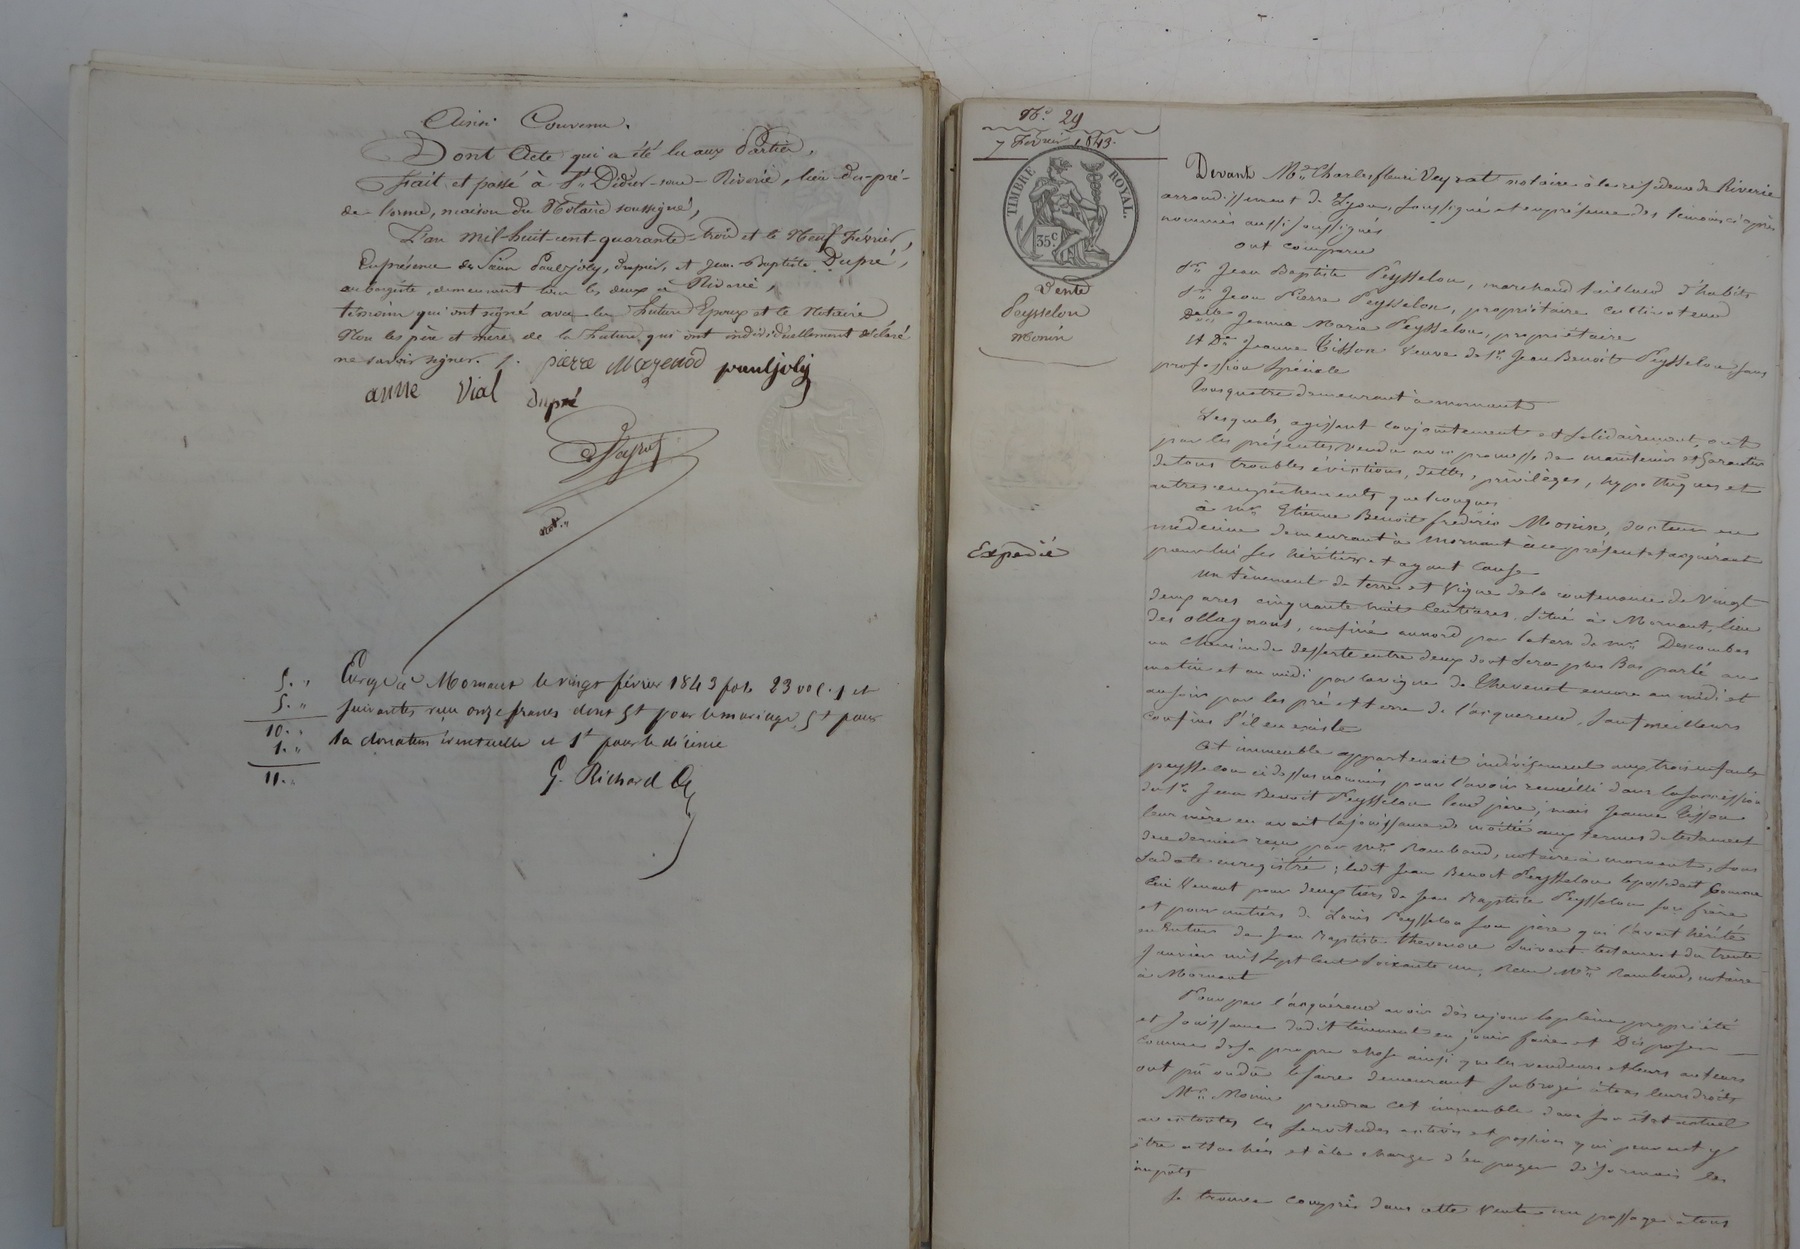 Ainsi Convenu.
Dont Acte qui a été lu aux Parties,
Fait et passé à St Didier-sous-Riverie, lieu du-pré-
de lorme, maison du Notaire soussigné,
L'an mil-huit-cent-quarante-trois et le Neuf Février,
En présence de Pauljoly, drapier, et Jean-Baptiste Dupré,
aubergiste, demeurant tous les deux à Riverie,
témoins qui ont signé avec les Futurs Epoux et le Notaire
Non les père et mère de la Future qui ont individuellement déclaré
ne savoir signer. pierre Mazenod pauljoly
anne Vial Dupré
Veyrat
not.
5. "
5. "
10. "
1. "
11. "
Enregé à Mornant le vingt février 1843 fol. 23 vol. 1 et
suivantes reçu onze francs dont 5f pour le mariage, 5f pour
la donation éventuelle et 1f pour le décime
G. Richard
No. 29
7 Février 1843.
TIMBRE ROYAL.
35 c
Vente
Peysselon
Monin
Expédié
Devant Me Charles fleuri Veyrat notaire à la résidence de Riverie
arrondissement de Lyon, soussigné et en présence des témoins ci après
nommés aussi soussignés
ont comparu
Sr Jean Baptiste Peysselon, marchand tailleur d'habits
Sr Jean Pierre Peysselon, propriétaire cultivateur
Delle Jeanne Marie Peysselon, propriétaire
Et De Jeanne Tisson Veuve de Sr Jean Benoit Peysselon sans
profession spéciale
Tous quatre demeurant à mornant
Lesquels agissant conjointement et solidairement, ont
par les présentes vendu avec promesse de maintenir et garantir
de tous troubles évictions, dettes, privilèges, hypothèques et
autres empêchements quelconques
à Mr Etienne Benoit frédéric Monin, docteur en
médecine demeurant à mornant à ce présent et acquérant
pour lui ses héritiers et ayant cause
un tènement de terre et vigne de la contenance de vingt
deux ares cinquante huit centiares, situé à Mornant, lieu
des ollagnons, confiné au nord par la terre de mr Descombes
un chemin de desserte entre deux dont sera plus Bas parlé au
matin et au midi par la vigne de Thevenet encore au midi et
au soir par les pré et terre de l'acquéreur, sauf meilleurs
confins s'il en existe
Cet immeuble appartenait indivisément aux trois enfants
peysselon ci dessus nommés pour l'avoir recueilli dans la succession
de Sr Jean Benoit Peysselon leur père; mais Jeanne Tisson
leur mère en avait la jouissance de moitié aux termes du testament
de ce dernier reçu par Me Rambaud, notaire à mornant, sous
sa date enregistré; ledit Jean Benoit Peysselon le possédait Comme
lui Venant pour deux tiers de Jean Baptiste Peysselon son frère
et pour un tiers de Louis Peysselon son père qui l'avait hérité
en Entier de Jean Baptiste Suivant testament du trente
Janvier mil sept cent soixante un, Reçu Me Rambaud, notaire
à Mornant
Pour par l'acquéreur avoir dès ce jour la pleine propriété
et Jouissance dudit tènement en jouir faire et Disposer
comme de sa propre chose ainsi que les vendeurs et leurs auteurs
ont pu ou dû le faire demeurant subrogé à tous leurs droits
Mr Monin prendra cet immeuble dans son état actuel
avec toutes les servitudes actives et passives qui peuvent y
être attachées et à la charge d'en payer désormais les
impôts
Se trouve compris dans cette vente un passage à tous